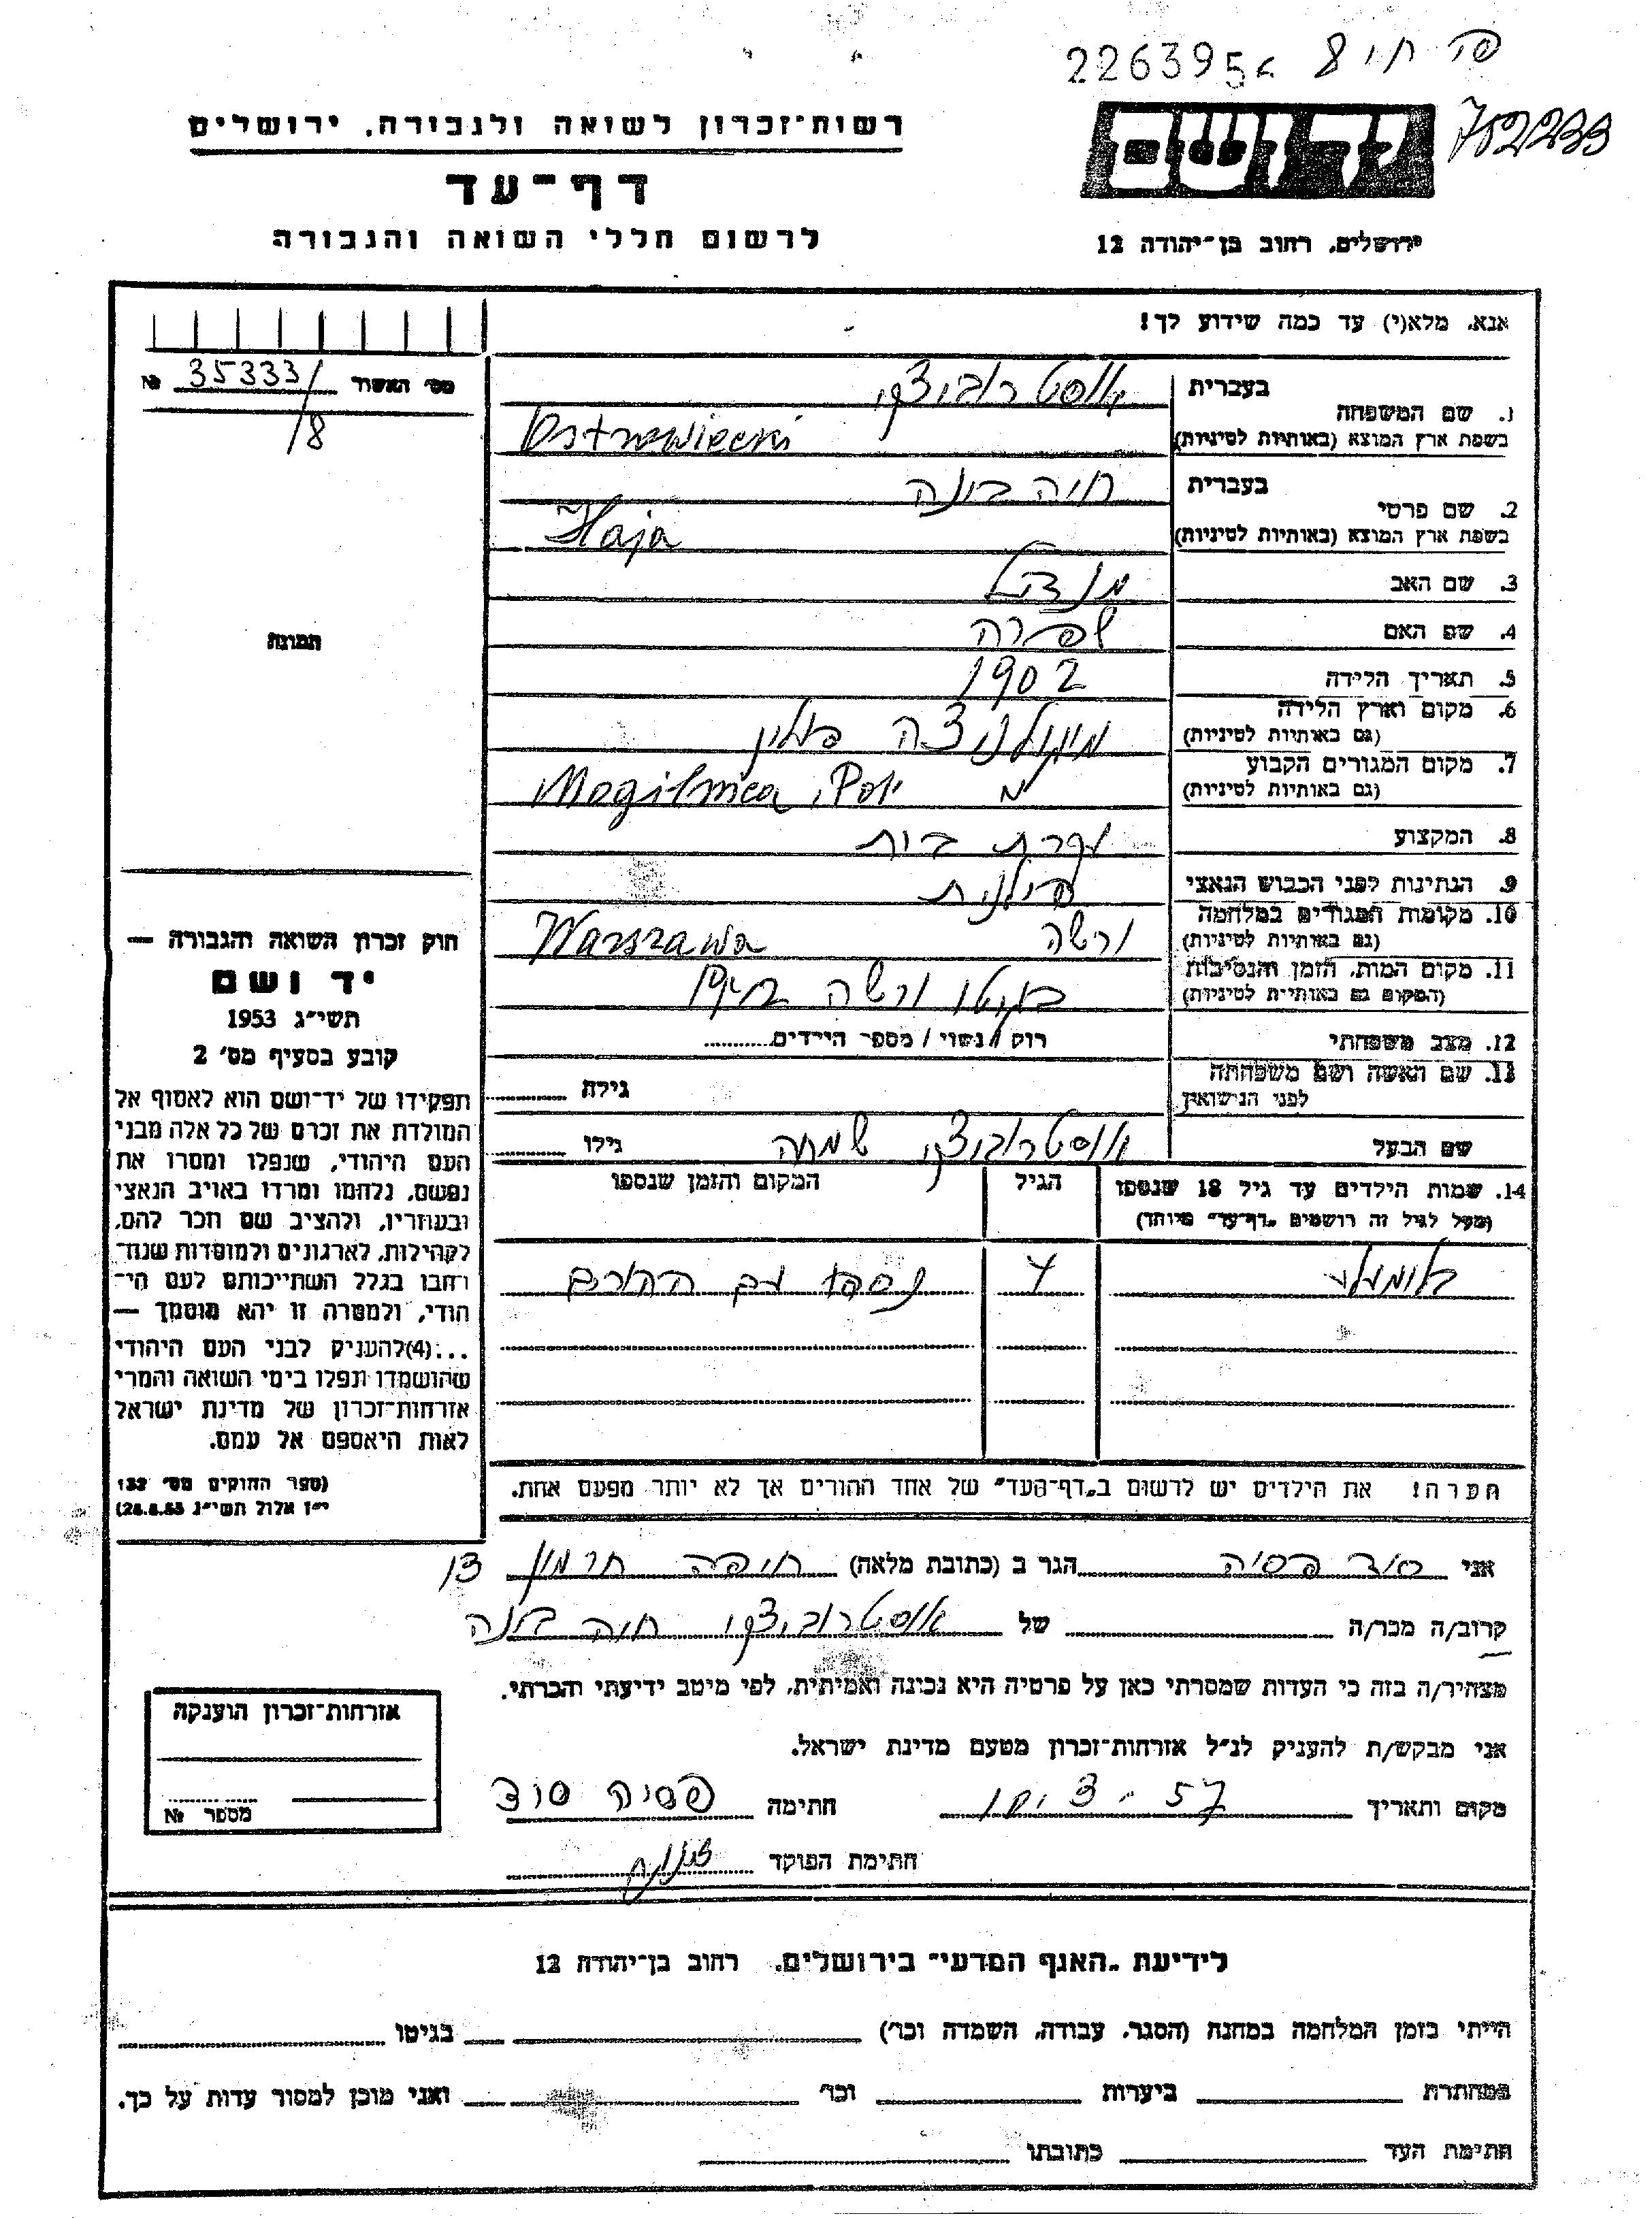 226395
752233
יד ושם
רשות־זכרון לשואה ולגבורה, ירושלים
דף־עד
לרשום חללי השואה והגבורה
ירושלים, רחוב בן־יהודה 12
אנא, מלא(י) עד כמה שידוע לך!
מס׳ האשור 35333/ №
/8
תמונה
בעברית אוסטרוביצקי
1. שם המשפחה
בשפת ארץ המוצא (באותיות לטיניות) Ostrowiecki
בעברית חיה בינה
2. שם פרטי
בשפת ארץ המוצא (באותיות לטיניות) Haja
3. שם האב מנדל
4. שם האם שפרה
5. תאריך הלידה 1902
6. מקום וארץ הלידה
(גם באותיות לטיניות) פולין
7. מקום המגורים הקבוע
(גם באותיות לטיניות) Mogilnica, Pol.
8. המקצוע עקרת בית
9. הנתינות לפני הכבוש הנאצי פולנית
10. מקומות המגורים במלחמה
(גם באותיות לטיניות) ורשה Warszawa
11. מקום המות, הזמן והנסיבות
(המקום גם באותיות לטיניות) בגיטו ורשה
12. מצב משפחתי רווק / נשוי / מספר הילדים
13. שם האשה ושם משפחתה
לפני הנישואין גילה
שם הבעל אוסטרוביצקי שמחה גילו
14. שמות הילדים עד גיל 18 שנספו הגיל המקום והזמן שנספו
(מעל לגיל זה רושמים „דף־עד״ מיוחד)
בלומעלע 4 נספה עם ההורים
הערה! את הילדים יש לרשום ב„דף־העד״ של אחד ההורים אך לא יותר מפעם אחת.
חוק זכרון השואה והגבורה —
יד ושם
תשי״ג 1953
קובע בסעיף מס׳ 2
תפקידו של יד־ושם הוא לאסוף אל
המולדת את זכרם של כל אלה מבני
העם היהודי, שנפלו ומסרו את
נפשם, נלחמו ומרדו באויב הנאצי
ובעוזריו, ולהציב שם וזכר להם,
לקהילות, לארגונים ולמוסדות שנח־
רבו בגלל השתייכותם לעם הי־
הודי, ולמטרה זו יהא מוסמך —
...(4)להעניק לבני העם היהודי
שהושמדו ונפלו בימי השואה והמרי
אזרחות־זכרון של מדינת ישראל
לאות היאספם אל עמם.
(ספר החוקים מס׳ 132
י״ז אלול תשי״ג 28.8.53)
אני סוד פסיה הגר ב (כתובת מלאה) חיפה
קרוב/ה מכר/ה של אוסטרוביצקי חיה בינה
מצהיר/ה בזה כי העדות שמסרתי כאן על פרטיה היא נכונה ואמיתית, לפי מיטב ידיעתי והכרתי.
אני מבקש/ת להעניק לנ״ל אזרחות־זכרון מטעם מדינת ישראל.
מקום ותאריך חתימה פסיה סוד
חתימת הפוקד
אזרחות־זכרון הוענקה
מספר №
לידיעת „האגף המדעי״ בירושלים, רחוב בן־יהודה 12
הייתי בזמן המלחמה במחנה (הסגר, עבודה, השמדה וכו׳) בגיטו
במחתרת ביערות וכו׳ ואני מוכן למסור עדות על כך.
חתימת העד כתובתו